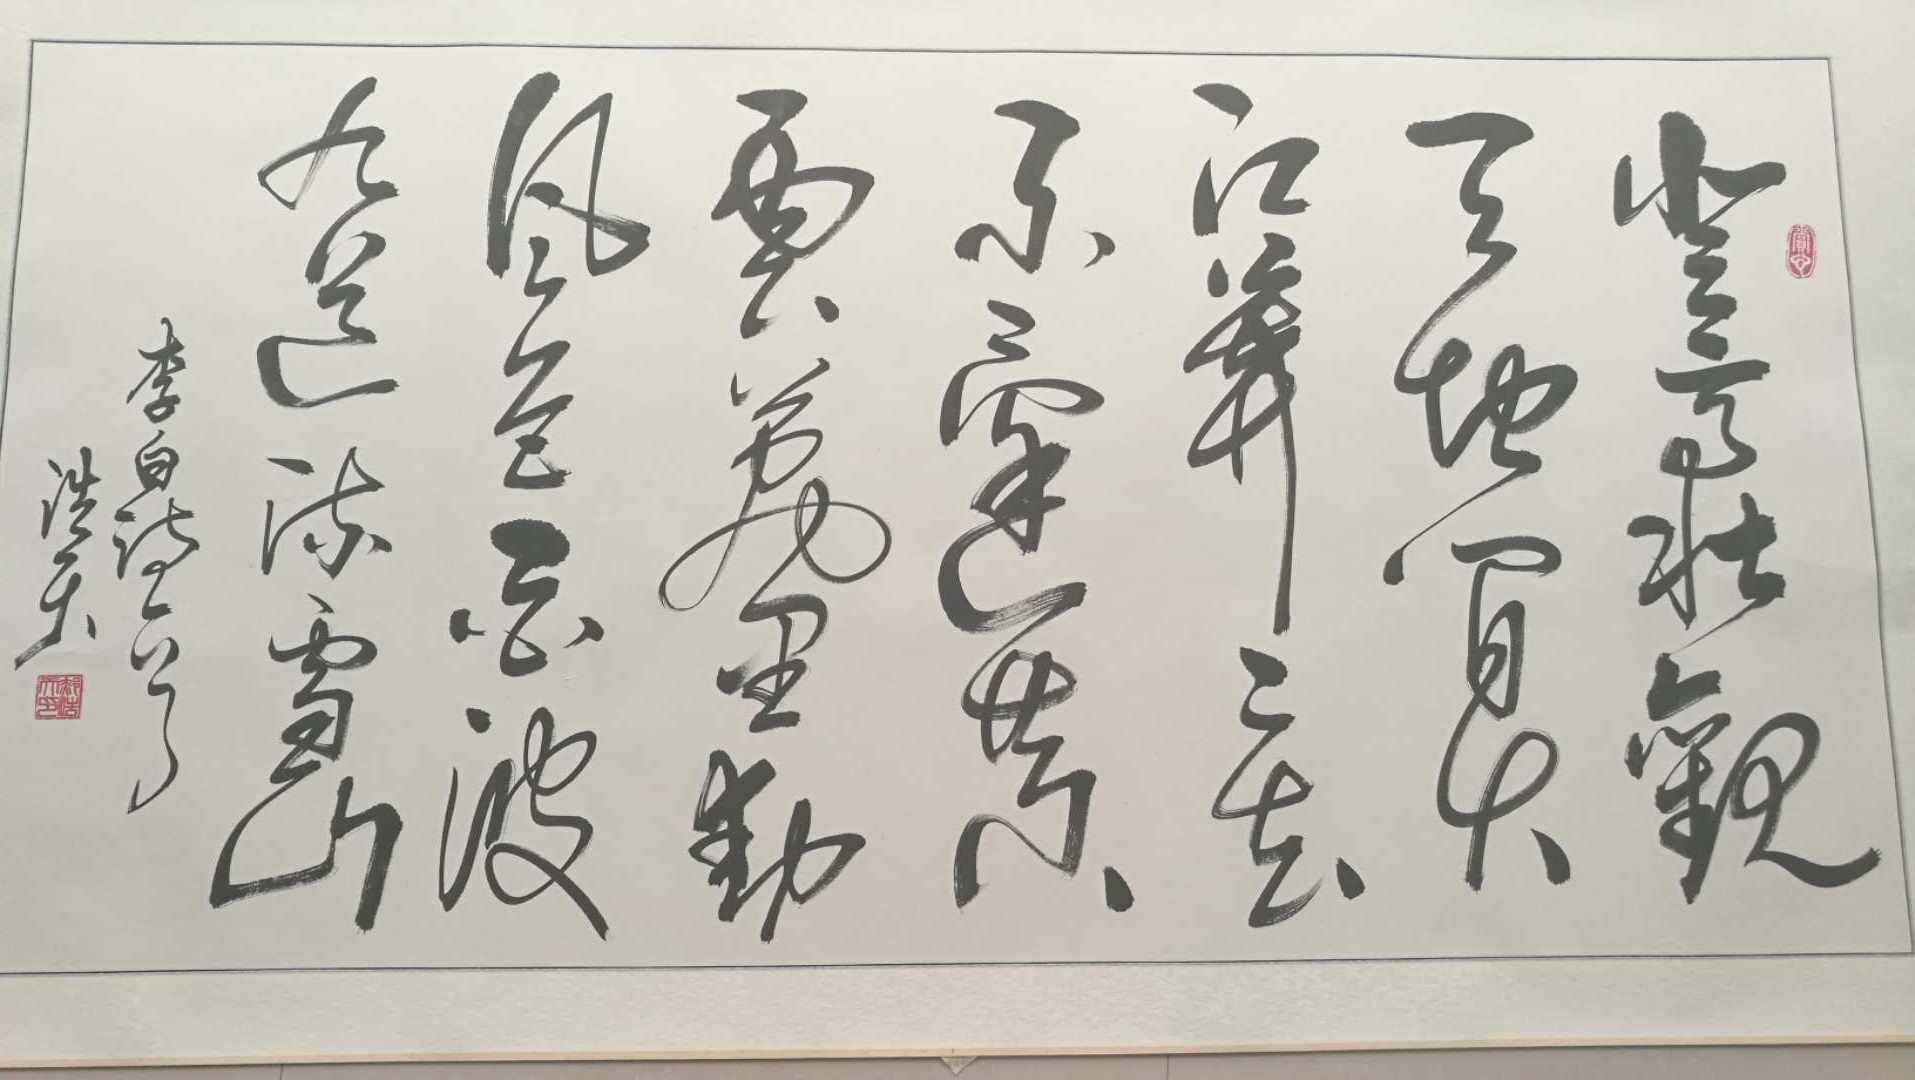 登高壮觀
天地間大
江茫々去
不還黄
雲萬里動
風色白波
九道流雪山
李白詩一首
浩天